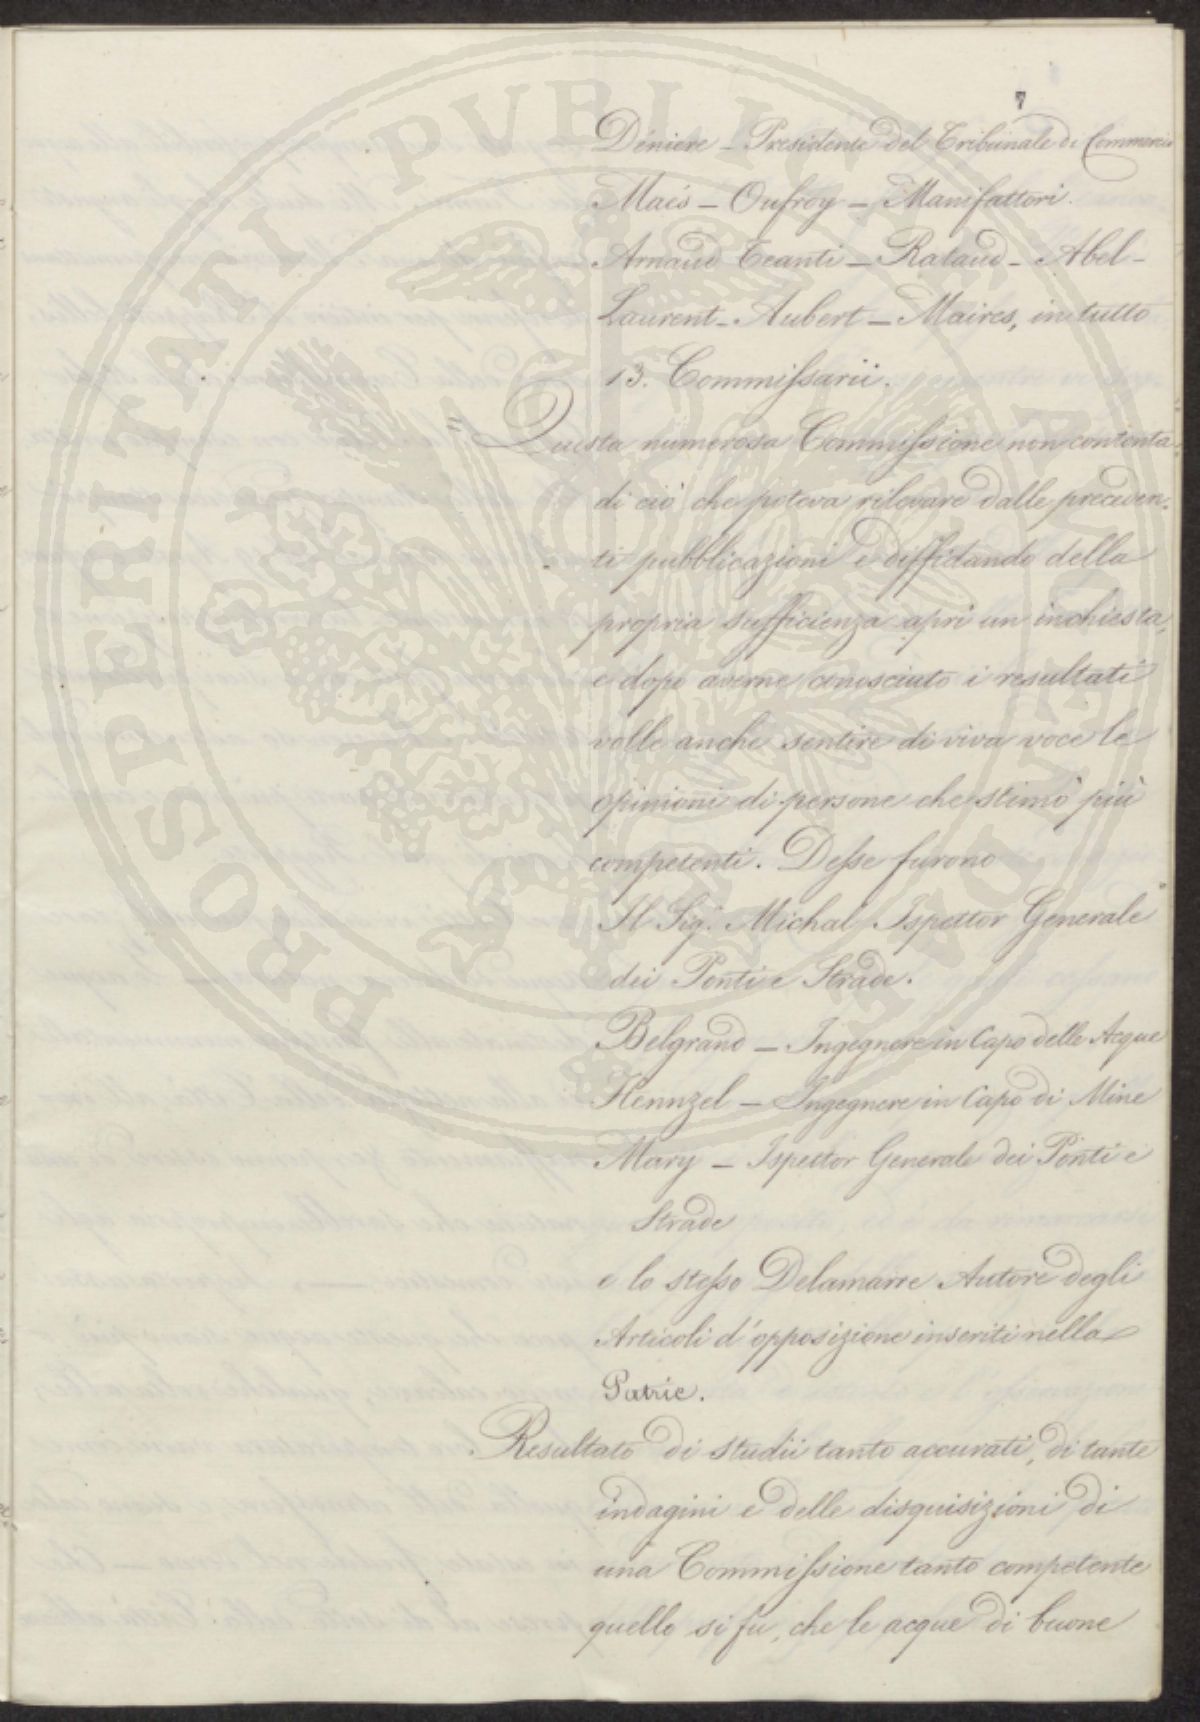 7
Déniere - Presidente del Tribunale di Commercio
Maés - Oufroy - Manifattori.
Arnaud Teanti - Rataud - Abel -
Laurent - Aubert - Maires, in tutto
13. Commissarii.
= Questa numerosa Commissione non contenta
di ciò che poteva rilevare dalle preceden-
ti pubblicazioni e diffidando della
propria sufficienza aprì un inchiesta,
e dopo averne conosciuto i resultati
volle anche sentire di viva voce le
opinioni di persone che stimò più
competenti. Desse furono
Il Sig.r Michal Ispettor Generale
dei Ponti e Strade.
Belgrand - Ingegnere in Capo delle Acque
Hennzel - Ingegnere in Capo di Mine
Mary - Ispettor Generale dei Ponti e
Strade
e lo stesso Delamarre Autore degli
Articoli d'opposizione inseriti nella
Patrie.
Resultato di studii tanto accurati, di tante
indagini e delle disquisizioni di
una Commissione tanto competente
quello si fu, che le acque di buone
PROSPERITATI PVBLICAE AVGENDAE